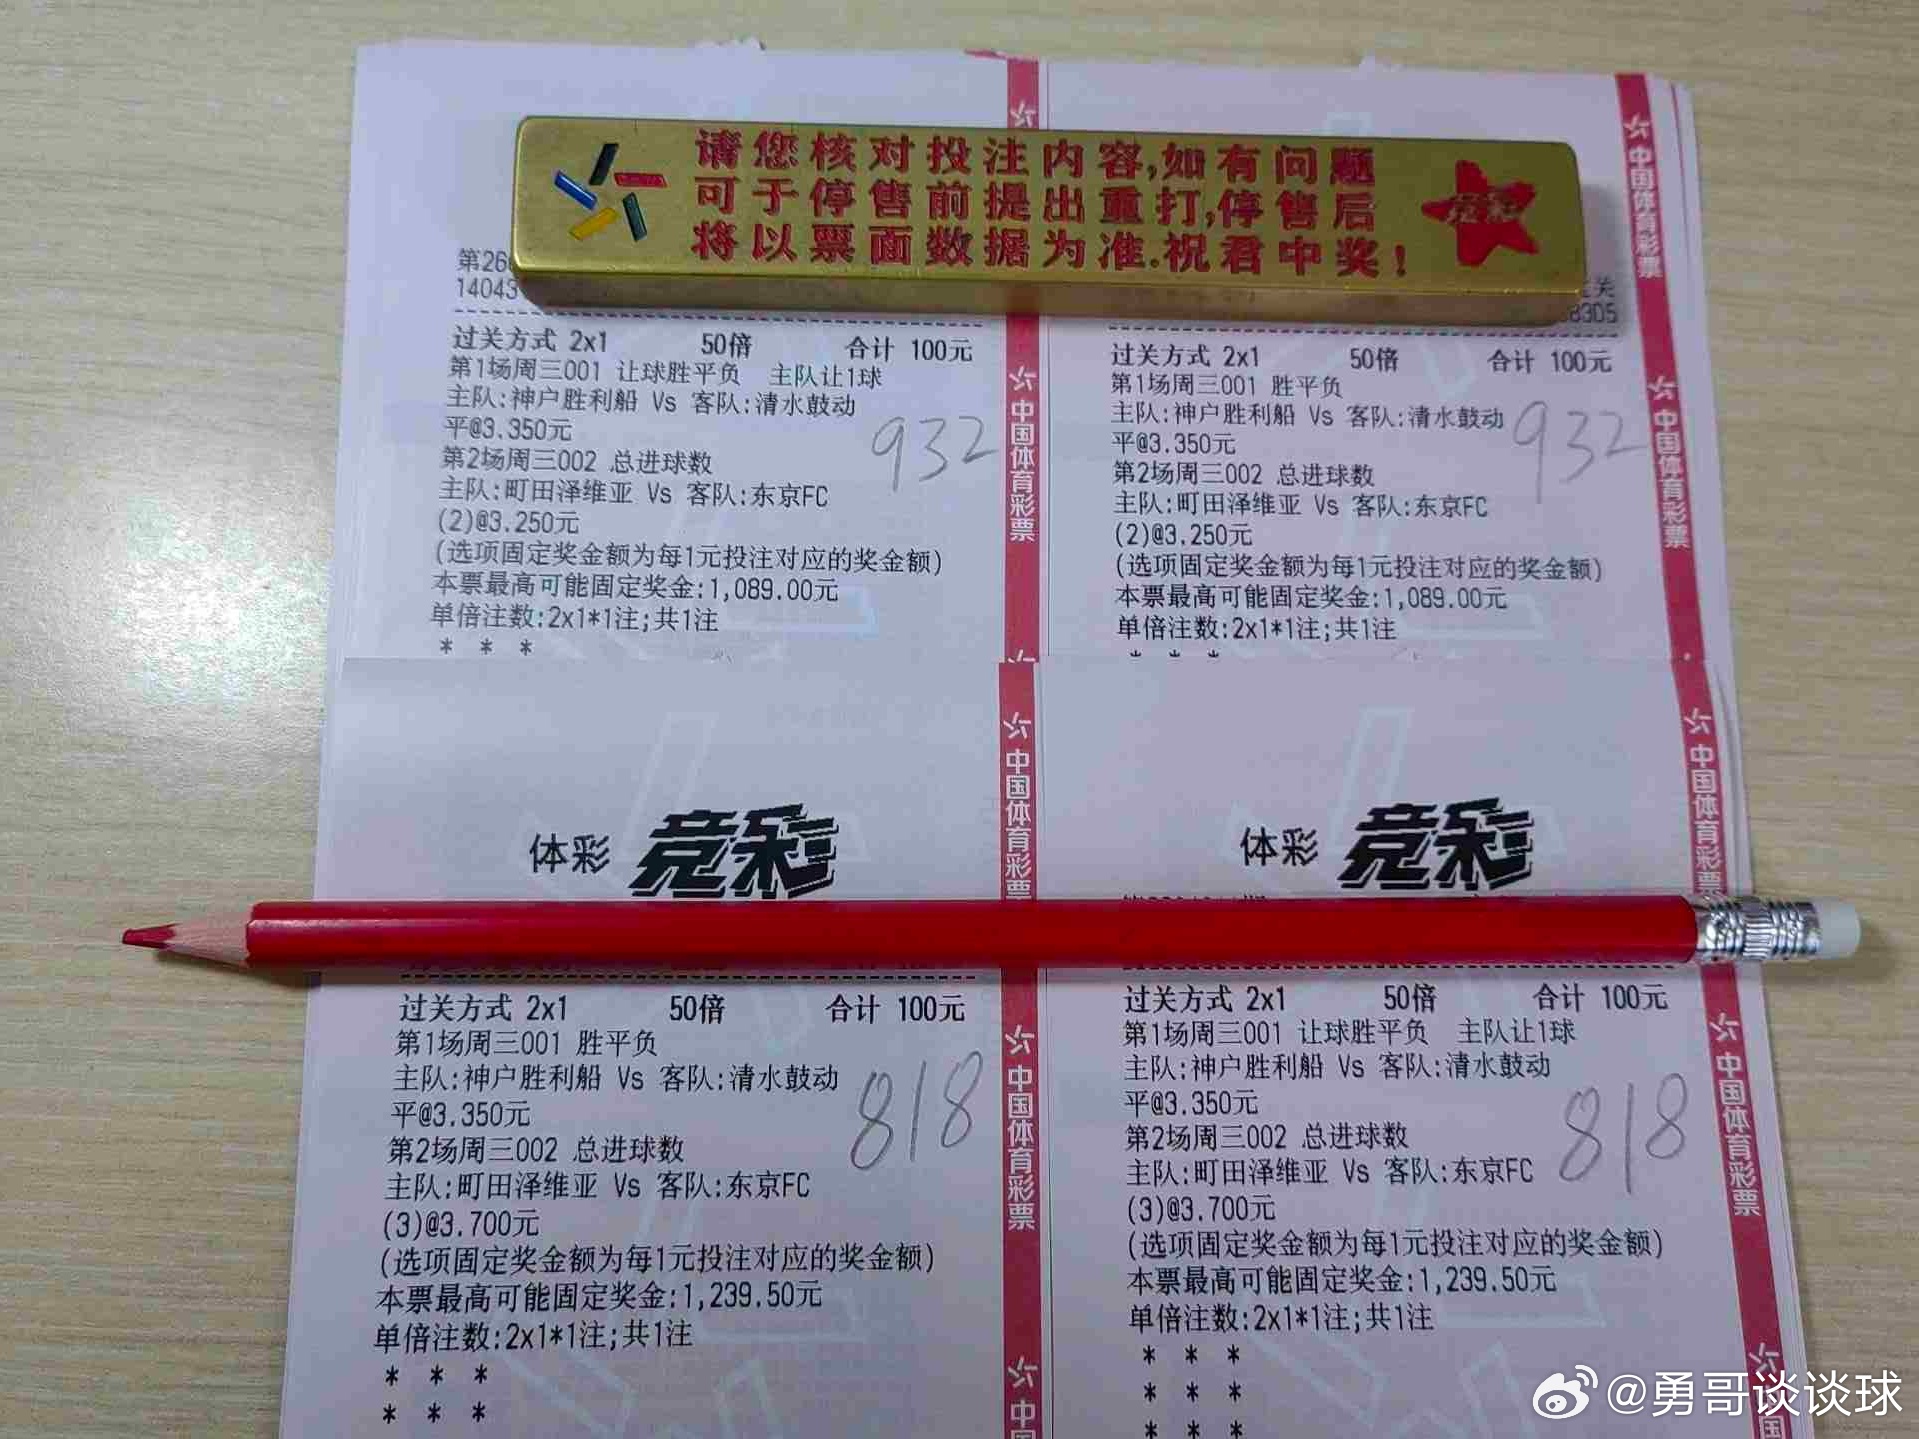 请您核对投注内容,如有问题
可于停售前提出重打,停售后
将以票面数据为准.祝君中奖!
竞彩
第26
14043
过关方式 2x1 50倍 合计 100元
第1场周三001 让球胜平负 主队让1球
主队:神户胜利船 Vs 客队:清水鼓动
平@3.350元
第2场周三002 总进球数
主队:町田泽维亚 Vs 客队:东京FC
(2)@3.250元
(选项固定奖金额为每1元投注对应的奖金额)
本票最高可能固定奖金:1,089.00元
单倍注数:2x1*1注;共1注
* * *
932
中国体育彩票
关
8305
过关方式 2x1 50倍 合计 100元
第1场周三001 胜平负
主队:神户胜利船 Vs 客队:清水鼓动
平@3.350元
第2场周三002 总进球数
主队:町田泽维亚 Vs 客队:东京FC
(2)@3.250元
(选项固定奖金额为每1元投注对应的奖金额)
本票最高可能固定奖金:1,089.00元
单倍注数:2x1*1注;共1注
* * *
932
中国体育彩票
中国体育彩票
体彩 竞彩
过关方式 2x1 50倍 合计 100元
第1场周三001 胜平负
主队:神户胜利船 Vs 客队:清水鼓动
平@3.350元
第2场周三002 总进球数
主队:町田泽维亚 Vs 客队:东京FC
(3)@3.700元
(选项固定奖金额为每1元投注对应的奖金额)
本票最高可能固定奖金:1,239.50元
单倍注数:2x1*1注;共1注
* * *
* * *
818
中国体育彩票
中国体育彩票
中
体彩 竞彩
过关方式 2x1 50倍 合计 100元
第1场周三001 让球胜平负 主队让1球
主队:神户胜利船 Vs 客队:清水鼓动
平@3.350元
第2场周三002 总进球数
主队:町田泽维亚 Vs 客队:东京FC
(3)@3.700元
(选项固定奖金额为每1元投注对应的奖金额)
本票最高可能固定奖金:1,239.50元
单倍注数:2x1*1注;共1注
* * *
* * *
* * *
818
中国体育彩票
中国体育彩票
中国
@勇哥谈谈球